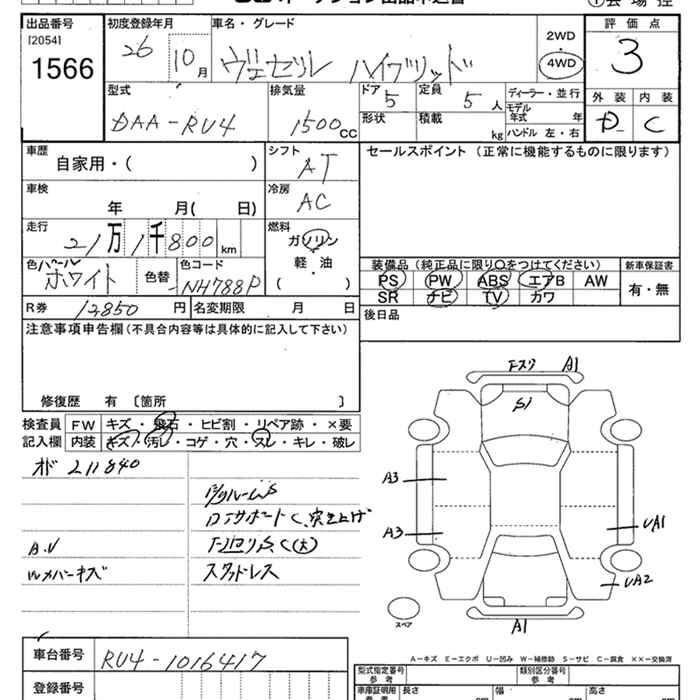 出品番号 初度登録年月 車名・グレード 評価点
[2054] 1566
26 10月 ヴェゼル ハイブリッド 2WD 4WD 3
型式 排気量 ドア 5 定員 5人 ディーラー・並行 外装 内装
DAA-RU4 1500cc 形状 積載 kg モデル年式 年 ハンドル 左・右 D- C
車歴 シフト セールスポイント(正常に機能するものに限ります)
自家用・( ) AT
車検 冷房
年 月( 日) AC
走行 燃料
21万1千800km ガソリン
軽・油
( )
色 パール 色替 色コード 装備品(純正品に限り○をつけてください) 新車保証書
ホワイト NH788P PS PW ABS エアB AW 有・無
SR ナビ TV カワ
R券 12850円 名変期限 月 日 後日品
注意事項申告欄(不具合内容等は具体的に記入して下さい)
修復歴 有 [箇所 ]
検査員 FW キズ・飛石・ヒビ割・リペア跡・×要
記入欄 内装 キズ・汚レ・コゲ・穴・スレ・キレ・破レ
オド 211840
A.V
Wメバーキズ
スタッドレス
A1
S1
A3
A3
UA1
UA2
A1
スペア
A-キズ E-エクボ U-凹み W-補修跡 S-サビ C-腐食 ××-交換済
車台番号 RU4-1016417
登録番号
型式指定番号 参考 類別区分番号 参考
車庫証明用 長さ 幅 高さ